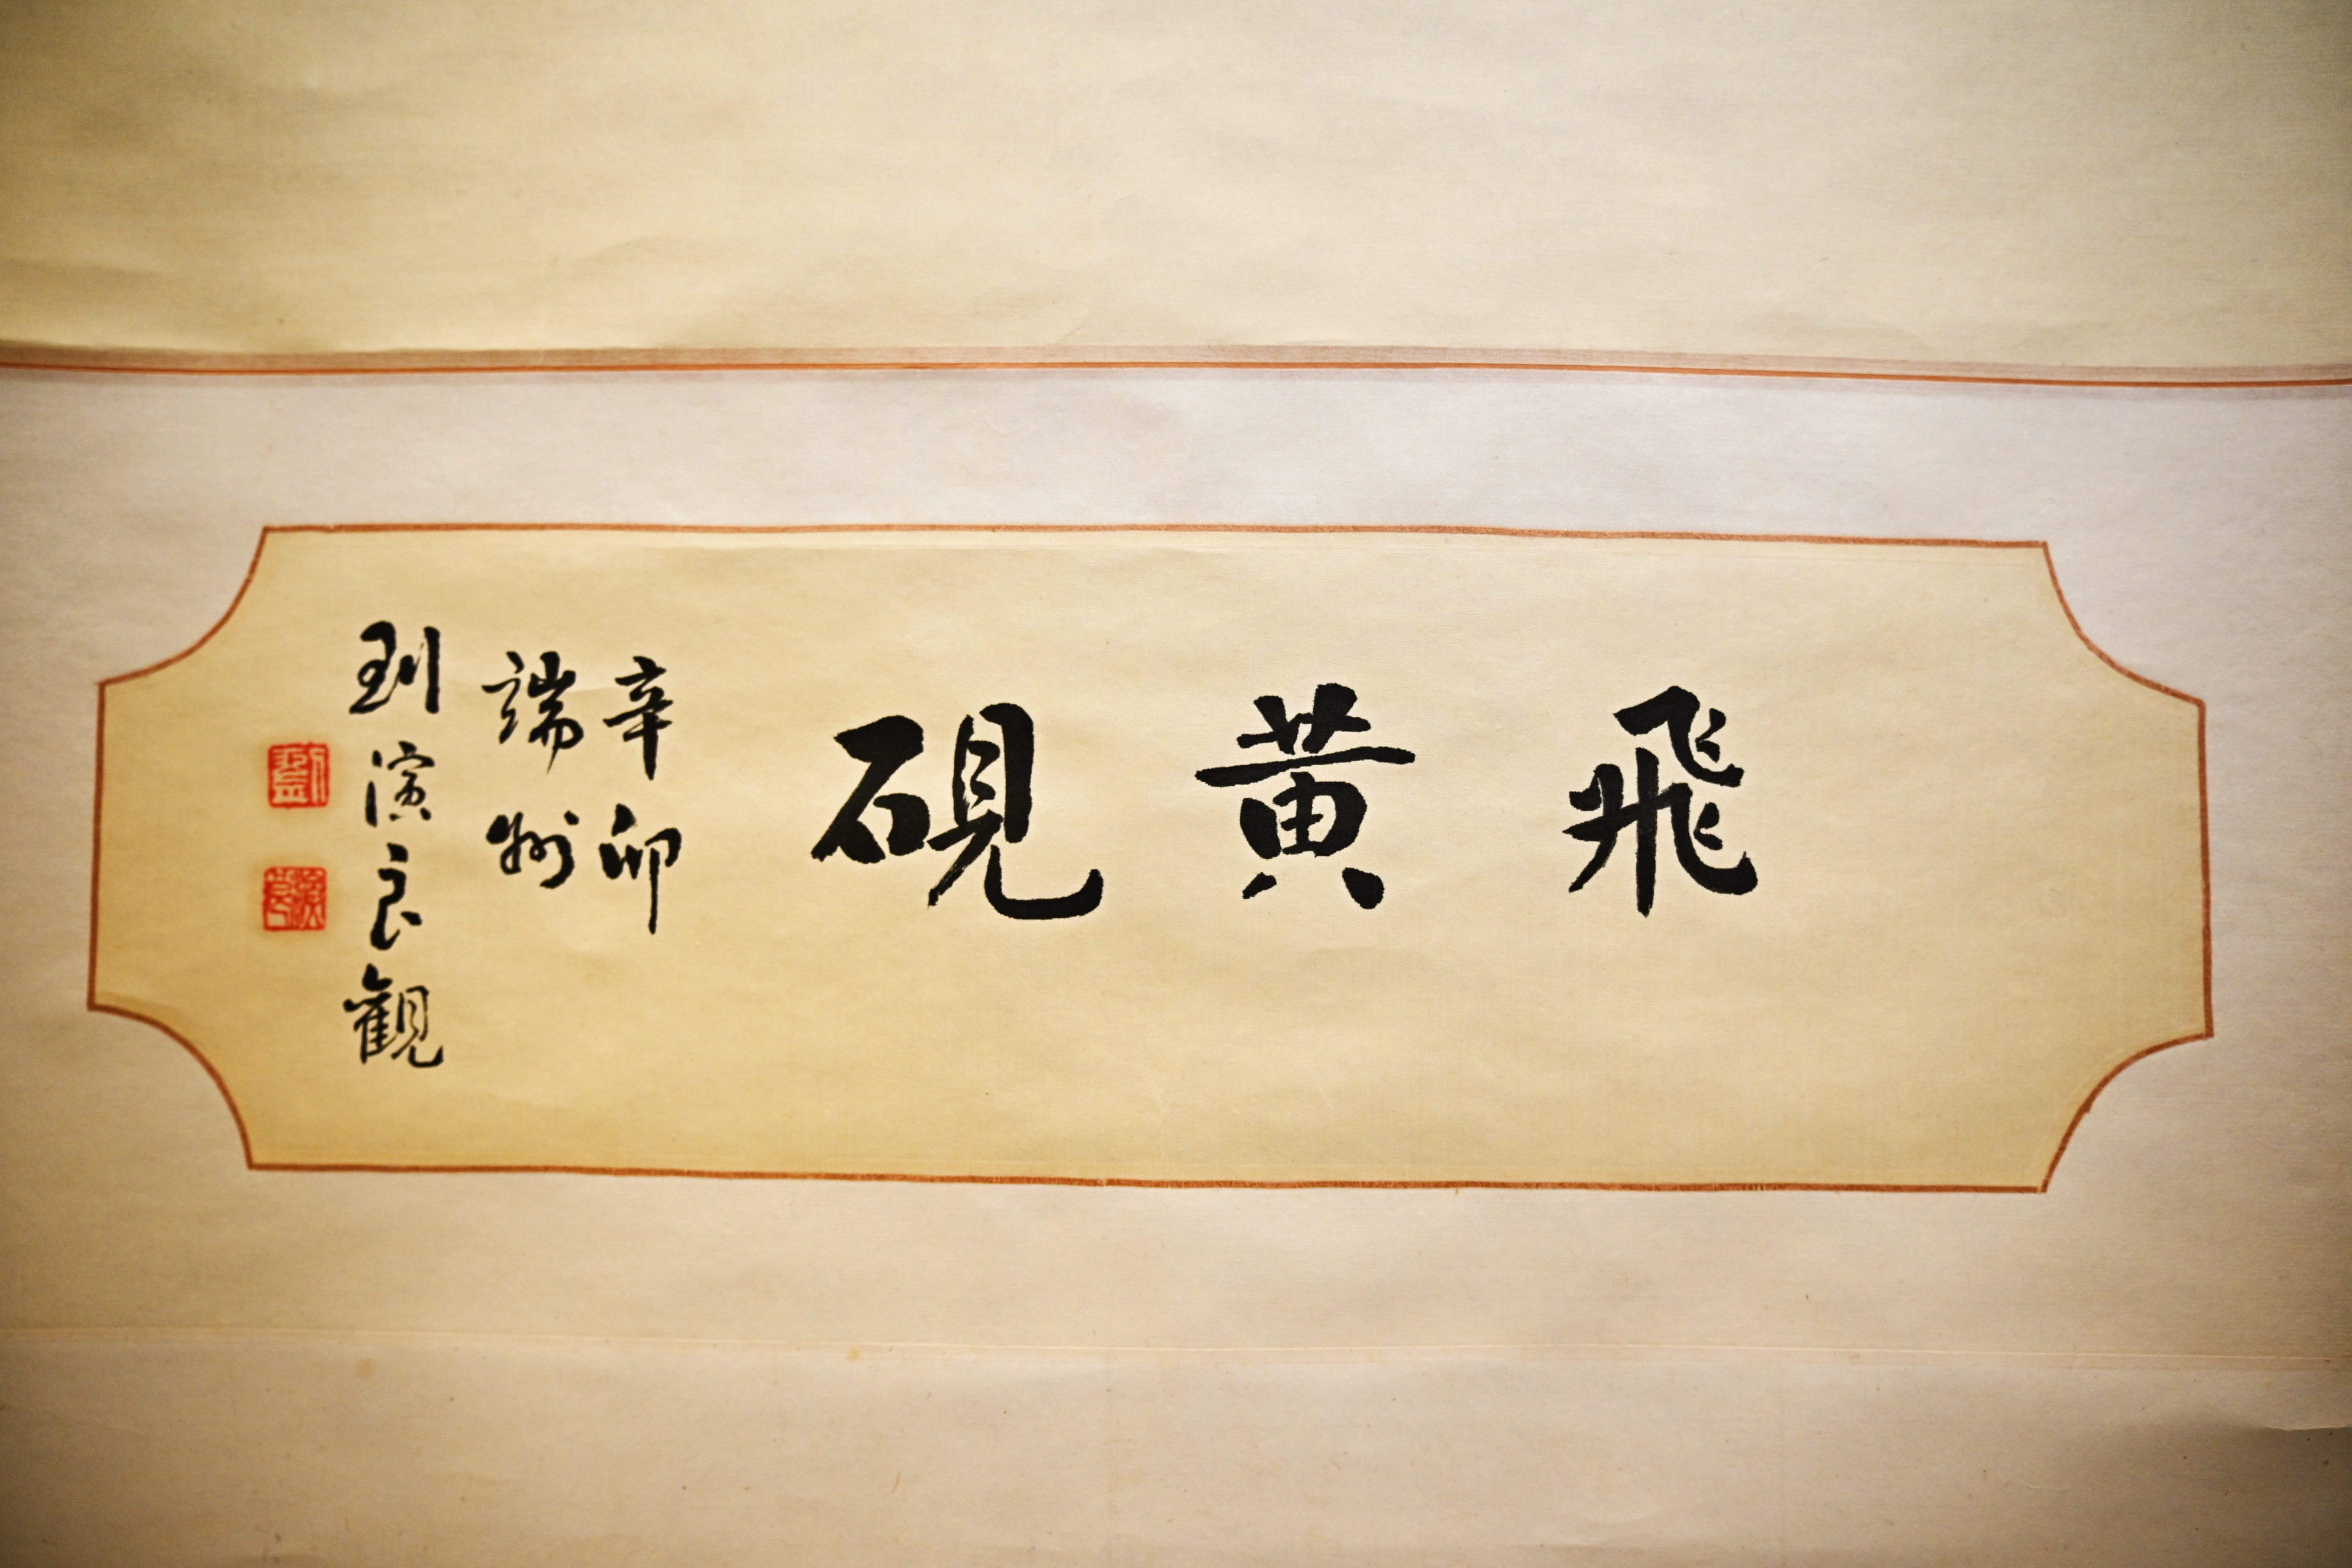 飛黃硯
辛卯
端州
劉演良觀